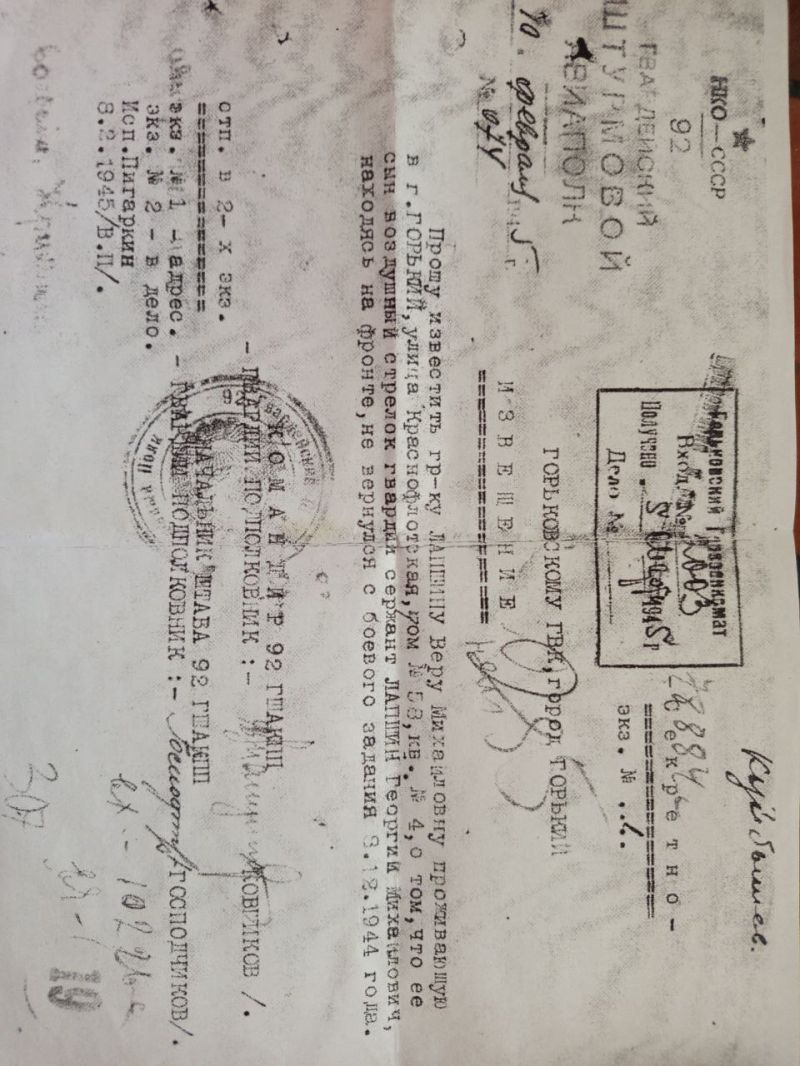 НКО—СССР
92
ГВАРДЕЙСКИЙ
ШТУРМОВОЙ
АВИАПОЛК
10. февраля 5 г.
№
Куйбышев.
Горьковский Горвоенкомат
Вход. № 2003
Получено 194 5 г
Дело №
-Секретно-
=================
экз. №
ГОРЬКОВСКОМУ ГВК, город ГОРЬКИЙ
ИЗВЕЩЕНИЕ
==================
Прошу известить гр-ку ЛАПШИНУ Веру Михайловну проживающую
в г.ГОРЬКИЙ,улица Краснофлотская,дом № 58,кв. № 4,о том,что ее
сын воздушный стрелок гвардии сержант ЛАПШИН Георгий Михайлович,
находясь на фронте,не вернулся с боевого задания 8.12.1944 года.
КОМАНДИР 92 ГШАПП
- ГВАРДИИ ПОДПОЛКОВНИК :-
НАЧАЛЬНИК ШТАБА 92 ГШАПП
- ГВАРДИИ ПОДПОЛКОВНИК :- /ГОСПОДЧИКОВ/.
отп. в 2-х экз.
==============
экз. №1 - адрес.
экз. № 2 - в дело.
Исп.Пигаркин
8.2.1945/В.П/.
307
19